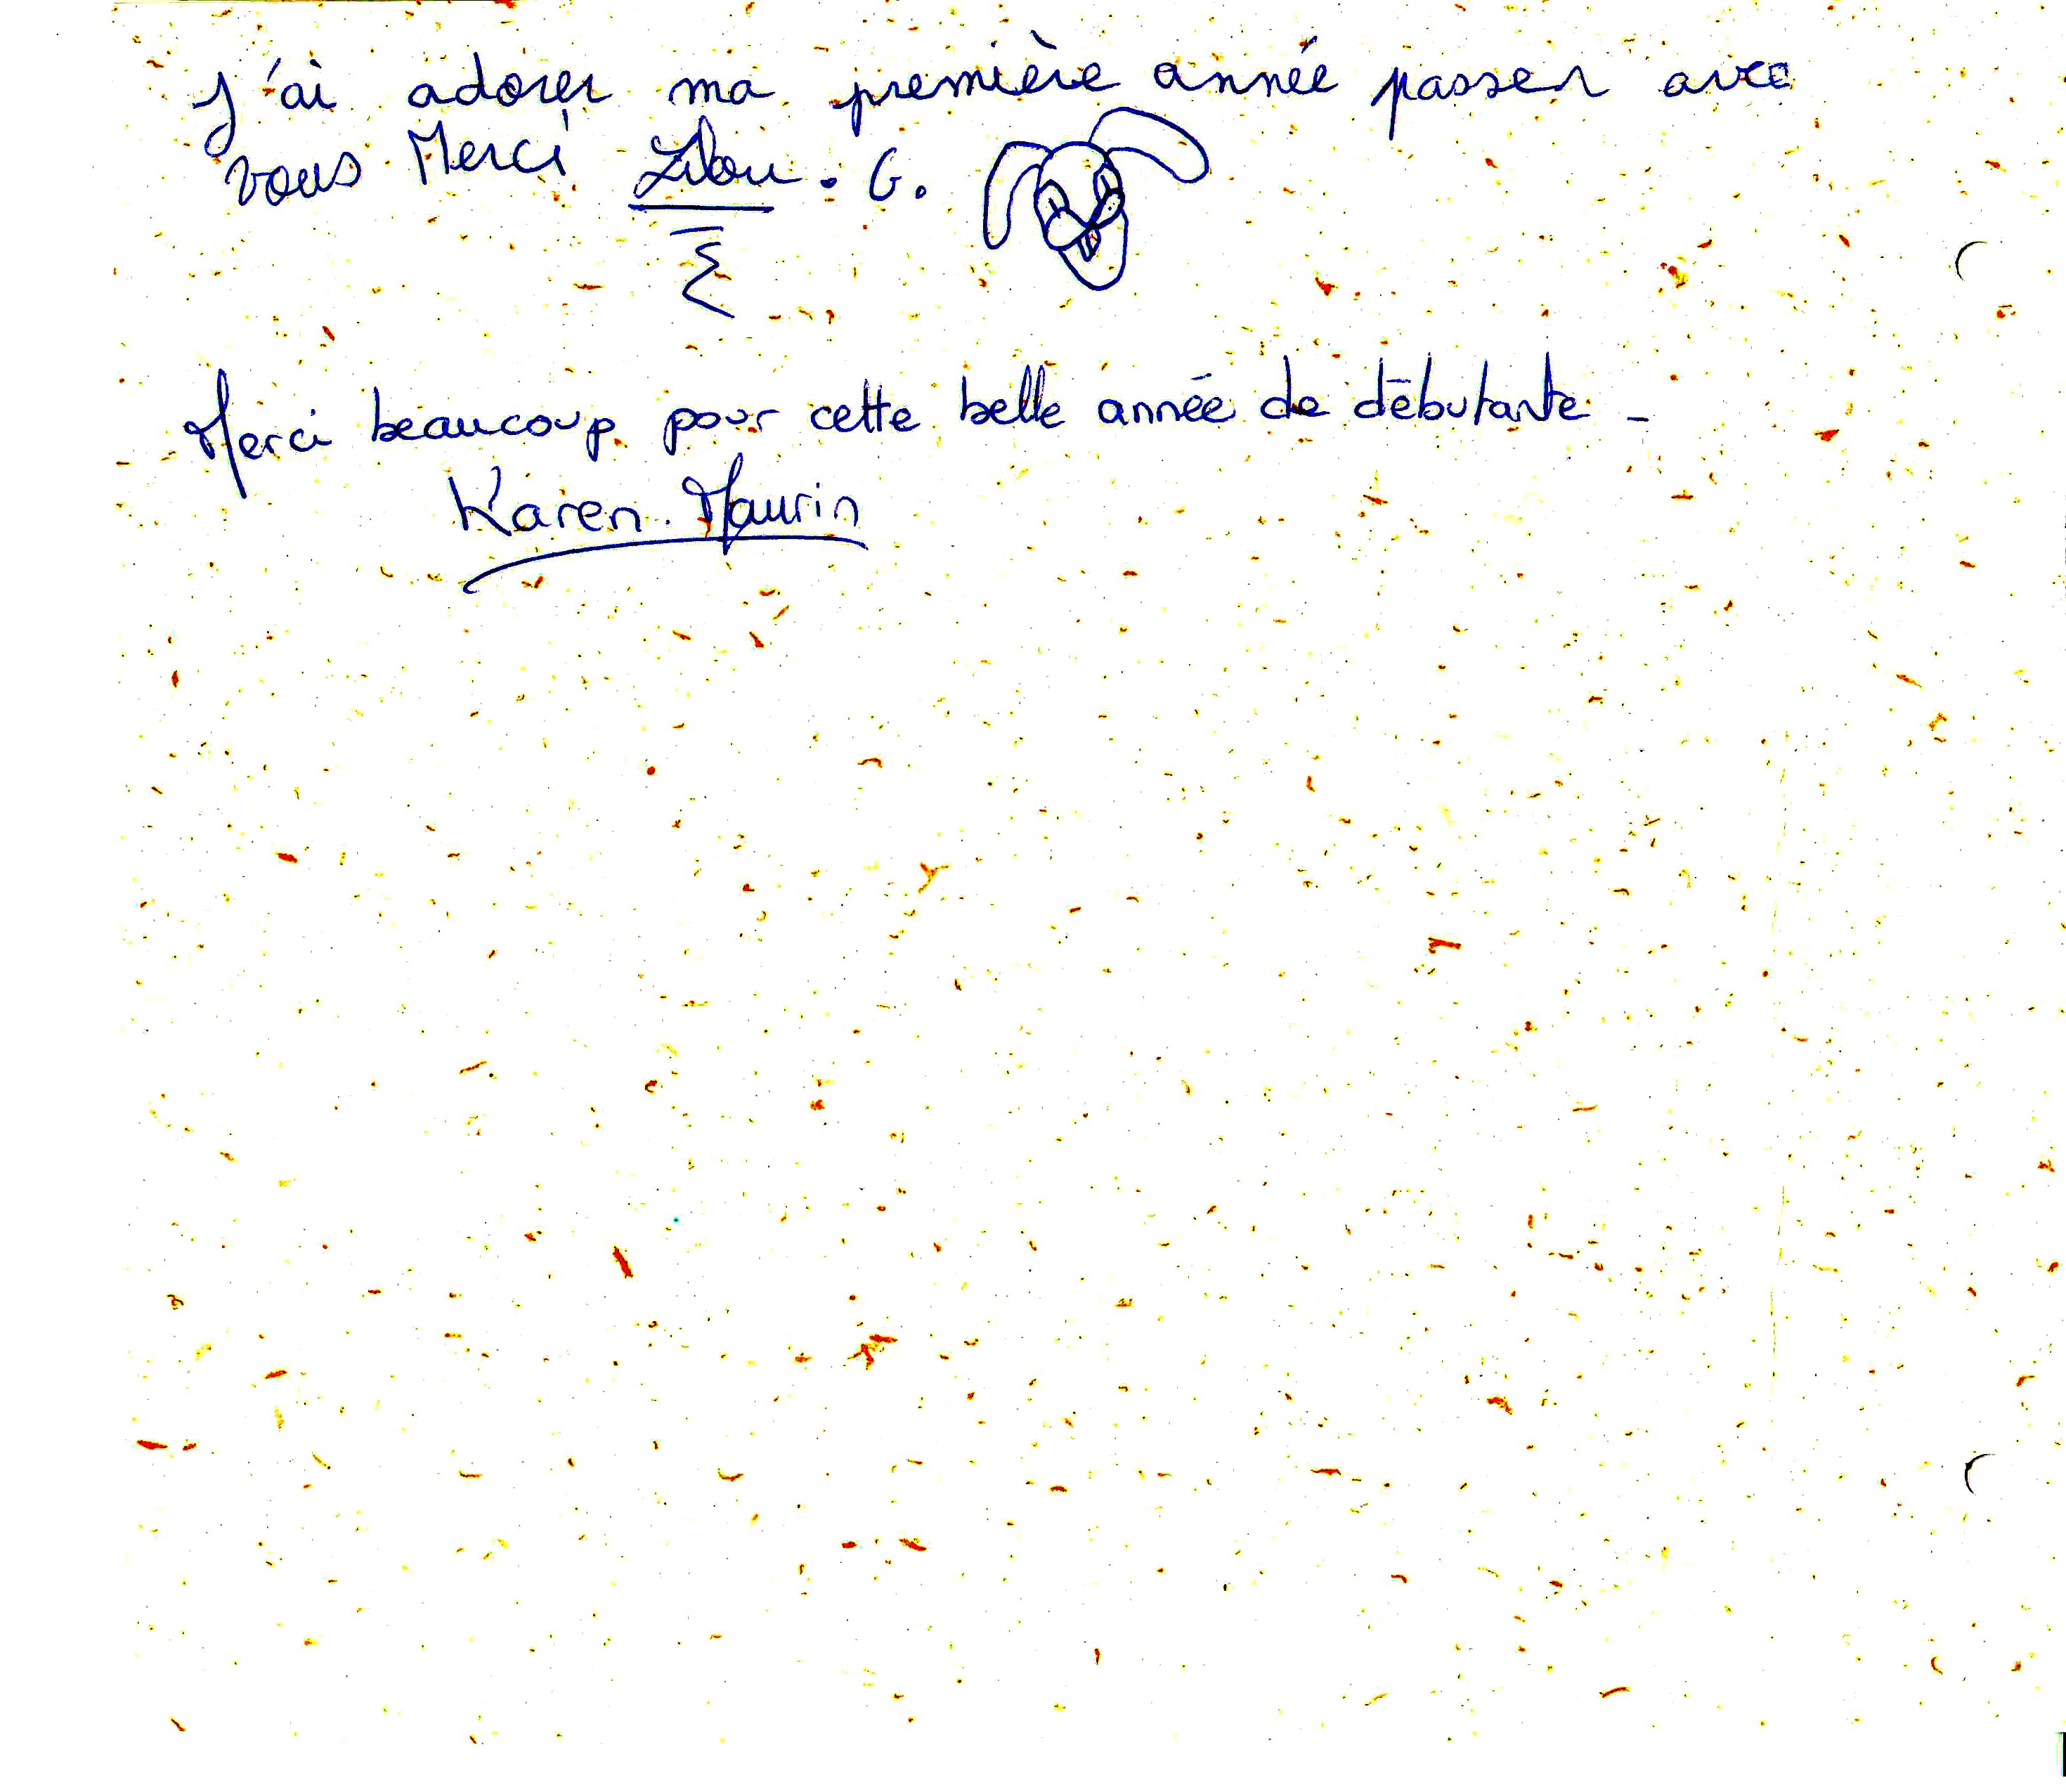 J'ai adorer ma première année passer avec
vous Merci Lilou. G.
Merci beaucoup pour cette belle année de débutante -
Karen. Maurin